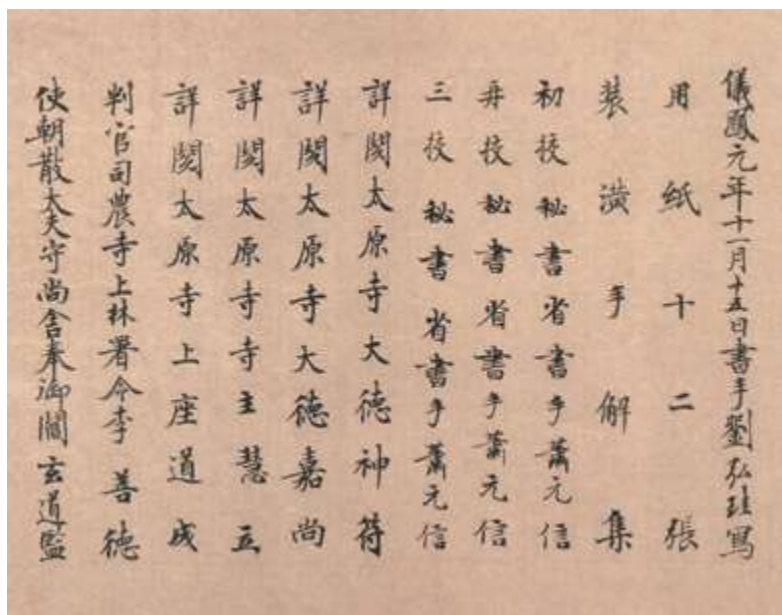 儀鳳元年十一月十五日書手劉弘珪寫
用紙十二張
裝潢手解集
初校秘書省書手蕭元信
再校秘書省書手蕭元信
三校秘書省書手蕭元信
詳閱太原寺大德神符
詳閱太原寺大德嘉尚
詳閱太原寺寺主慧立
詳閱太原寺上座道成
判官司農寺上林署令李善德
使朝散大夫守尚舍奉御閻玄道監